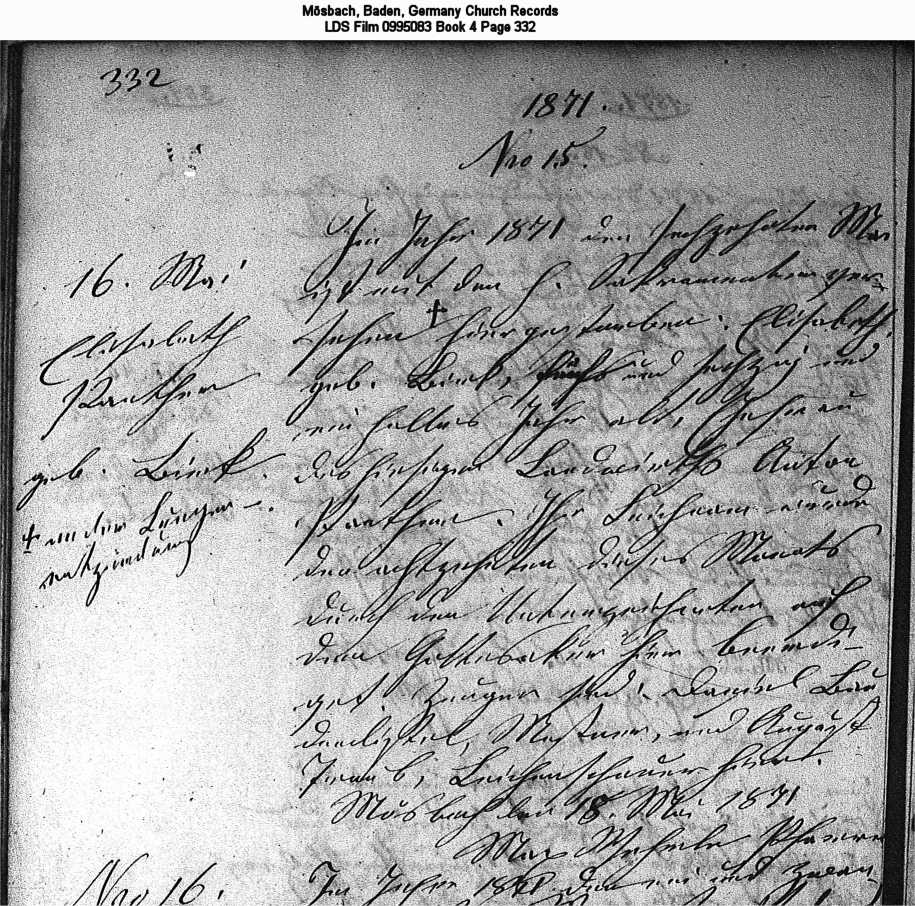 Mösbach, Baden, Germany Church Records
LDS Film 0995083 Book 4 Page 332
332
1871.
Nro 15.
16. Mai
Elisabeth
Panther
geb. Birk.
† an der Lungen-
entzündung
Im Jahr 1871 den sechzehnten Mai
ist mit den h. Sakramenten ver-
sehen hier gestorben: Elisabeth,
geb. Birk, fünf und sechzig und
ein halbes Jahr alt, Ehefrau
des hiesigen Landwirths Anton
Panther. Ihr Leichnam wurde
den achtzehnten dieses Monats
durch den Unterzeichneten auf
dem Gottesacker hier beerdi-
get. Zeugen sind: Daniel
Meßner, und August
Leichenschauer hier.
Mösbach den 18. Mai 1871
Max Pfarrer
Nro 16.
Im Jahr 1871 den ein und zwan-